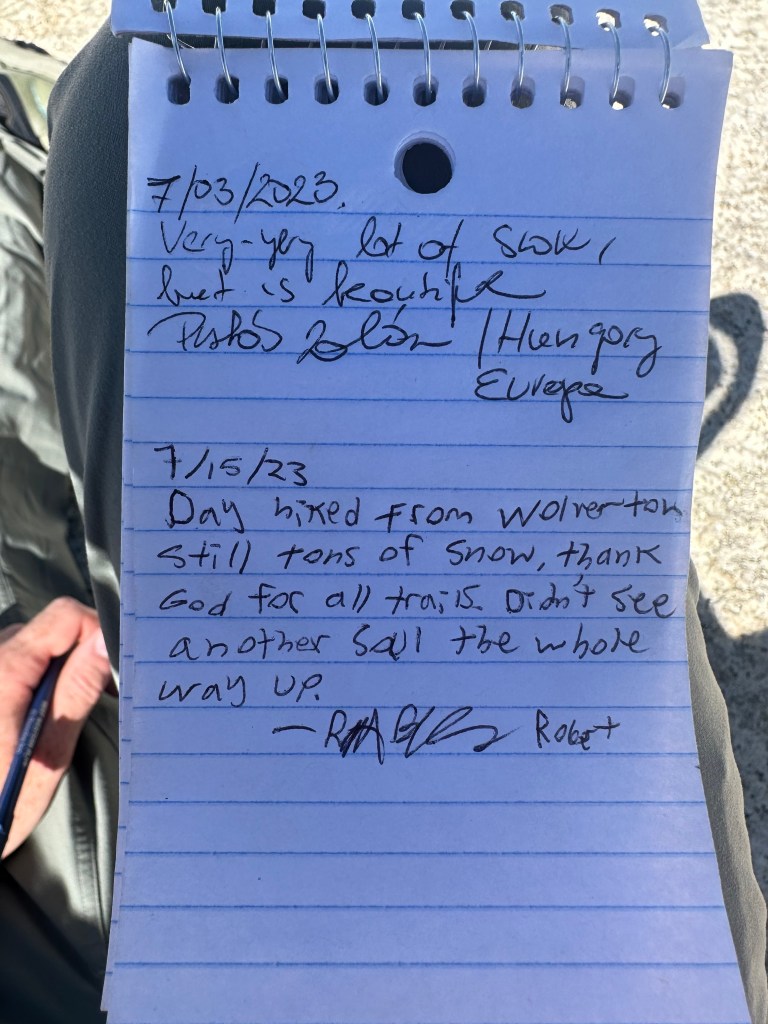 7/03/2023.
Very-very lot of snow,
but is beautiful
Zoltán / Hungary
Europe
7/15/23
Day hiked from Wolverton
still tons of snow, thank
God for all trails. Didn't see
another soul the whole
way up.
— Robert